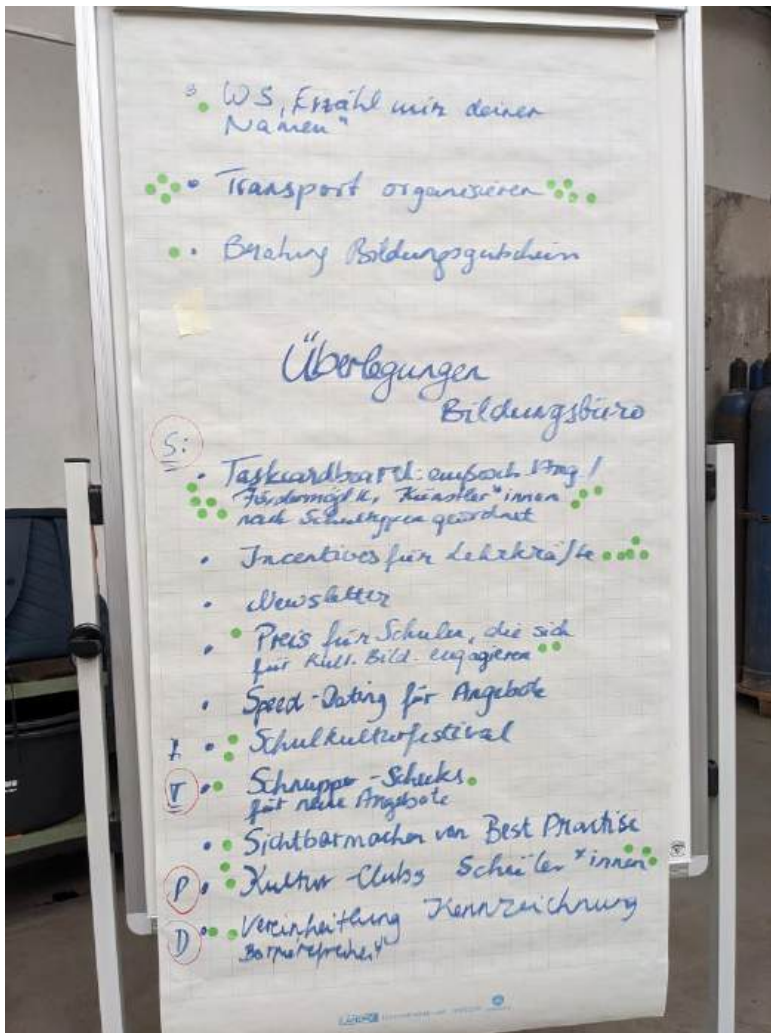 • WS „Erzähl mir deinen
Namen"
• Transport organisieren
• Beratung Bildungsgutschein
Überlegungen
Bildungsbüro
S:
• Taskcardboard: einfach
Fördermögl., Künstler*innen
nach Schultypen geordnet
• Incentives für Lehrkräfte
• Newsletter
• Preis für Schulen, die sich
für Kult. Bild. engagieren
• Speed-Dating für Angebote
• Schulkulturfestival
V • Schnupper-Schecks
für neue Angebote
• Sichtbarmachen von Best Practise
P • Kultur-Clubs Schüler*innen
D • Vereinheitlung Kennzeichnung
Barrierefreiheit